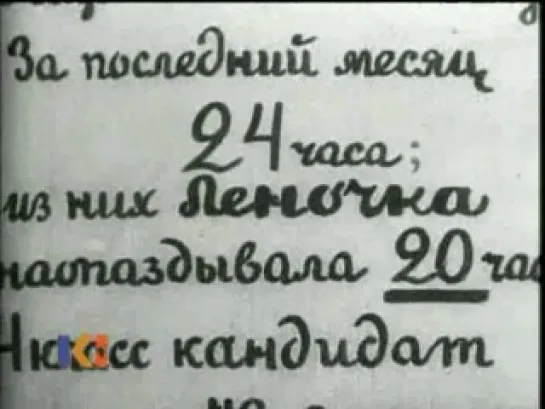 За последний месяц
24 часа;
из них Леночка
наопаздывала 20 час
кандидат